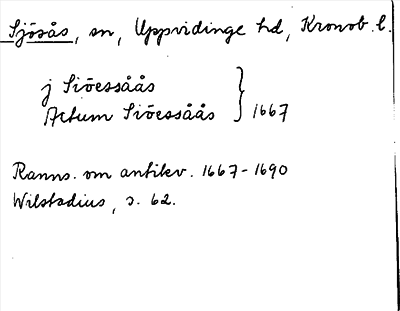 Sjösås, sn, Uppvidinge hd, Kronob. l.
j Siöessåås
Actum Siöessåås } 1667
Ranns. om antikv. 1667-1690
Wilstadius, s. 62.